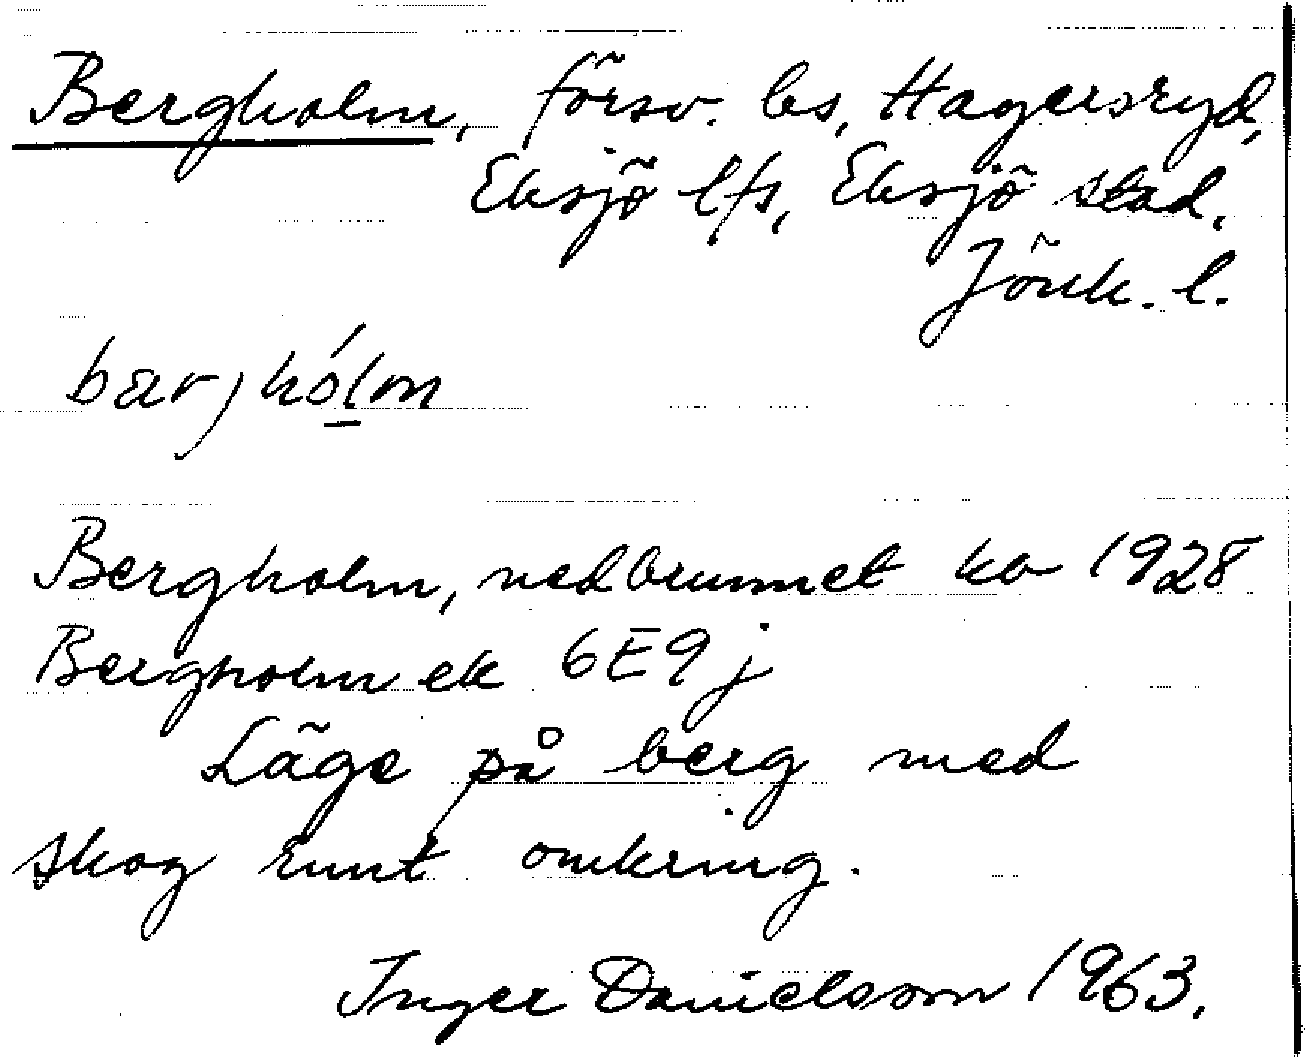 Bergholm, försv. bs, Hagersryd,
Eksjö lfs, Eksjö stad,
Jönk. l.
bærjhólm
Bergholm, nedbrunnet ko 1928
Bergholm ek 6E9j
Läge på berg med
skog runt omkring.
Inger Danielsson 1963.